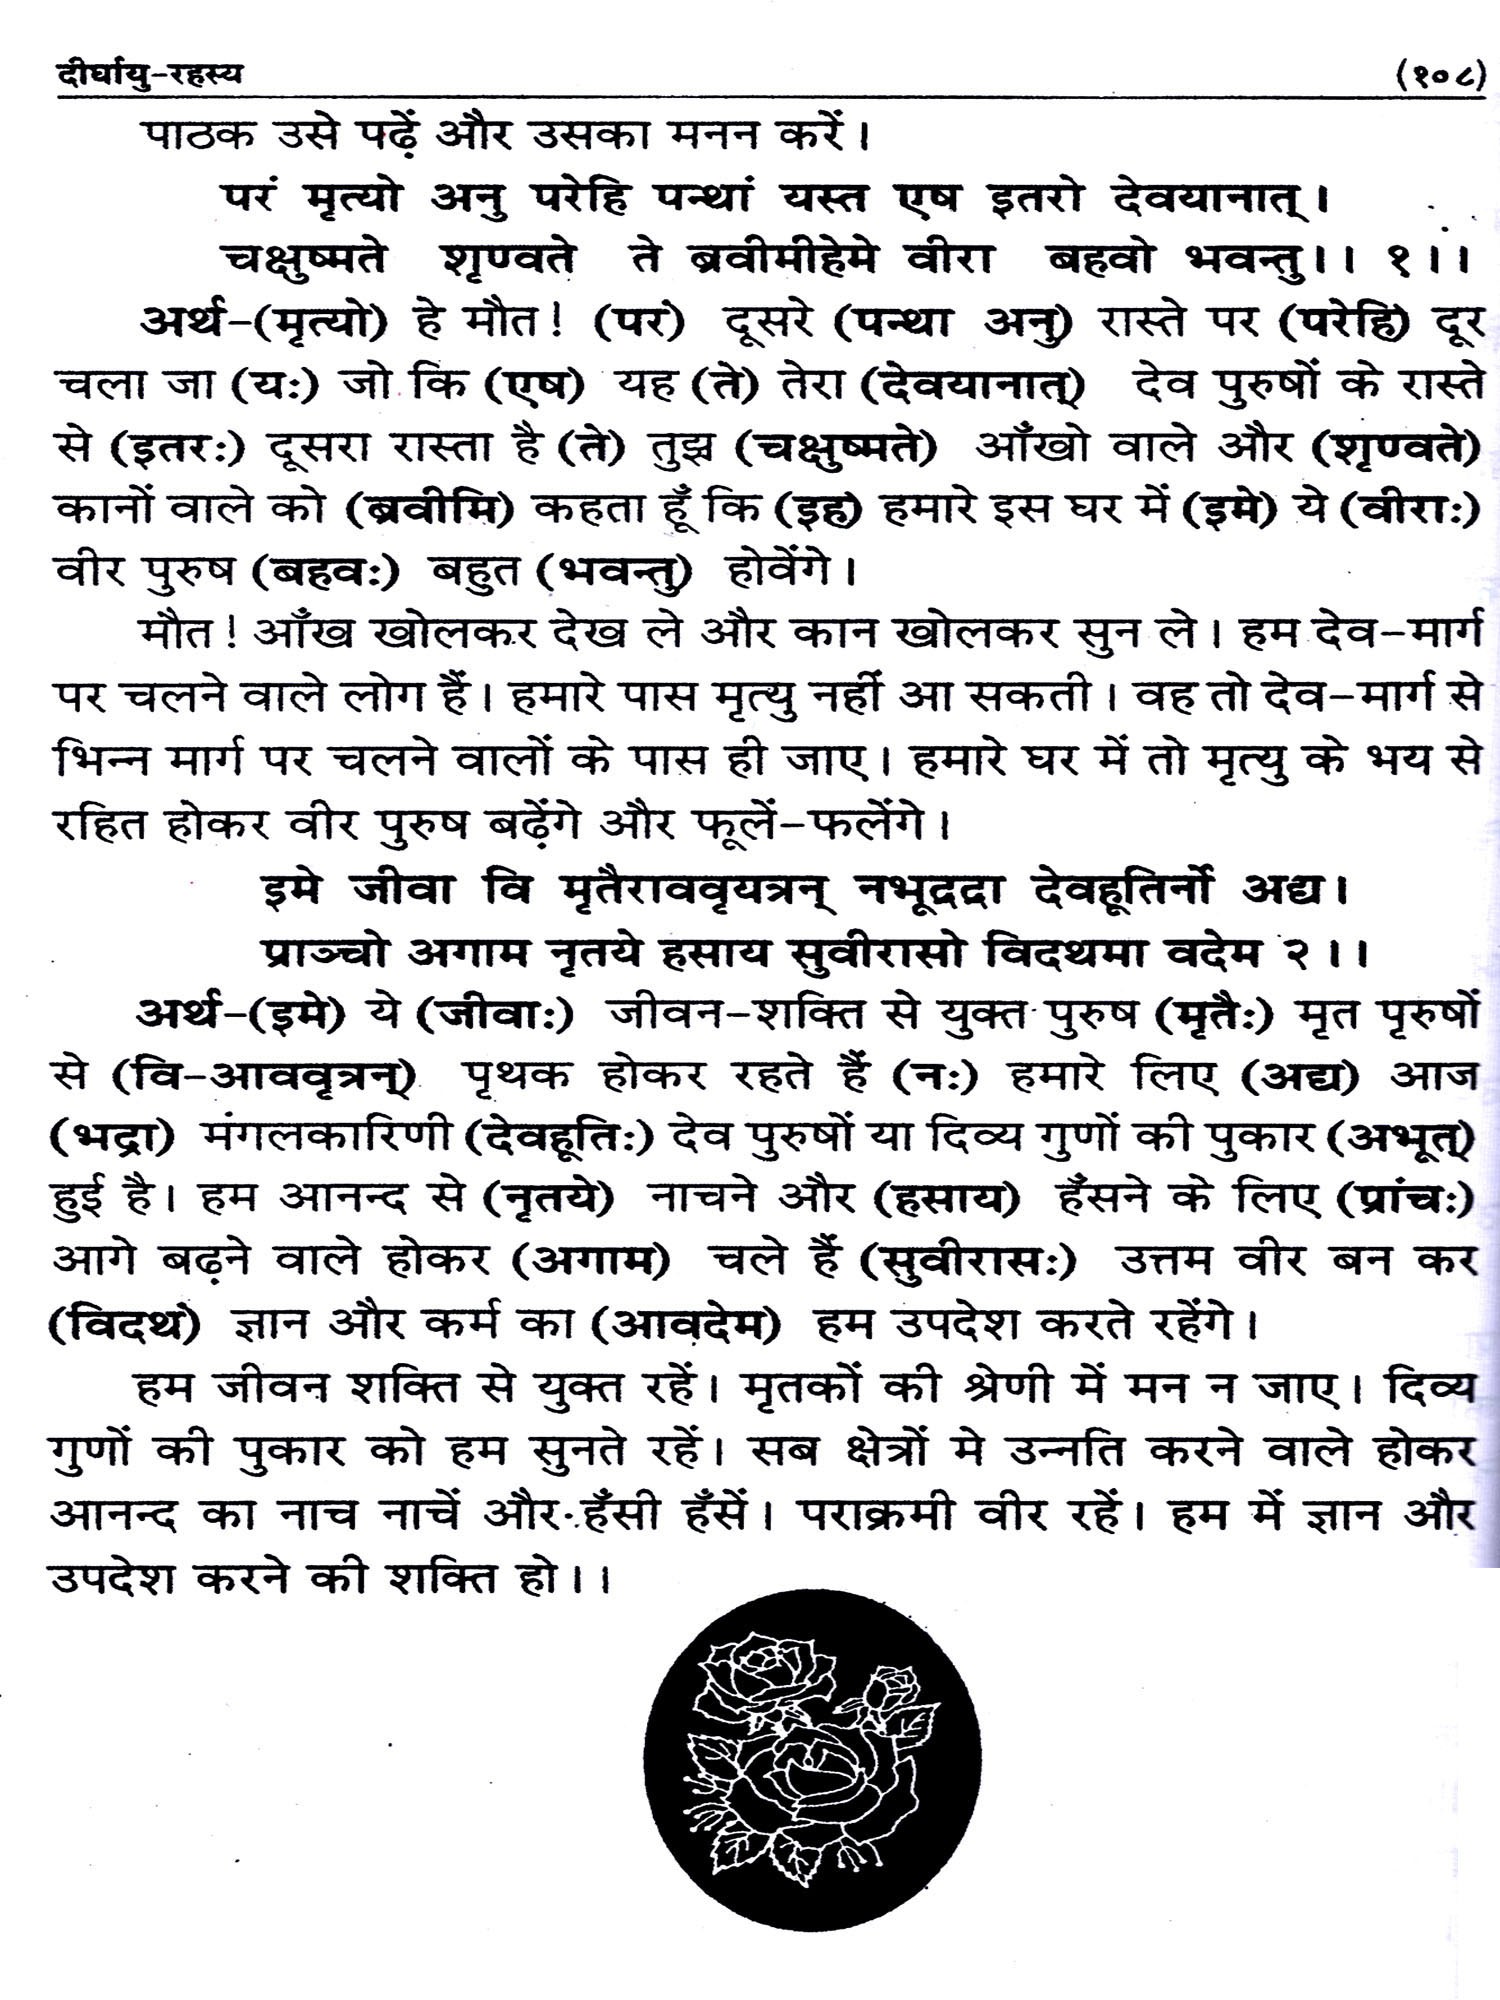 दीर्घायु-रहस्य (१०८)
पाठक उसे पढ़ें और उसका मनन करें।
परं मृत्यो अनु परेहि पन्थां यस्त एष इतरो देवयानात्।
चक्षुष्मते शृण्वते ते ब्रवीमीहेमे वीरा बहवो भवन्तु।। १।।
अर्थ-(मृत्यो) हे मौत! (परं) दूसरे (पन्था अनु) रास्ते पर (परेहि) दूर
चला जा (यः) जो कि (एष) यह (ते) तेरा (देवयानात्) देव पुरुषों के रास्ते
से (इतरः) दूसरा रास्ता है (ते) तुझ (चक्षुष्मते) आँखो वाले और (शृण्वते)
कानों वाले को (ब्रवीमि) कहता हूँ कि (इह) हमारे इस घर में (इमे) ये (वीराः)
वीर पुरुष (बहवः) बहुत (भवन्तु) होवेंगे।
मौत! आँख खोलकर देख ले और कान खोलकर सुन ले। हम देव-मार्ग
पर चलने वाले लोग हैं। हमारे पास मृत्यु नहीं आ सकती। वह तो देव-मार्ग से
भिन्न मार्ग पर चलने वालों के पास ही जाए। हमारे घर में तो मृत्यु के भय से
रहित होकर वीर पुरुष बढ़ेंगे और फूलें-फलेंगे।
इमे जीवा वि मृतैराववृयत्रन् नभूद्रद्रा देवहूतिर्नो अद्य।
प्राञ्चो अगाम नृतये हसाय सुवीरासो विदथमा वदेम २।।
अर्थ-(इमे) ये (जीवाः) जीवन-शक्ति से युक्त पुरुष (मृतैः) मृत पृरुषों
से (वि-आववृत्रन्) पृथक होकर रहते हैं (नः) हमारे लिए (अद्य) आज
(भद्रा) मंगलकारिणी (देवहूतिः) देव पुरुषों या दिव्य गुणों की पुकार (अभूत्)
हुई है। हम आनन्द से (नृतये) नाचने और (हसाय) हँसने के लिए (प्रांचः)
आगे बढ़ने वाले होकर (अगाम) चले हैं (सुवीरासः) उत्तम वीर बन कर
(विदथं) ज्ञान और कर्म का (आवदेम) हम उपदेश करते रहेंगे।
हम जीवन शक्ति से युक्त रहें। मृतकों की श्रेणी में मन न जाए। दिव्य
गुणों की पुकार को हम सुनते रहें। सब क्षेत्रों मे उन्नति करने वाले होकर
आनन्द का नाच नाचें और हँसी हँसें। पराक्रमी वीर रहें। हम में ज्ञान और
उपदेश करने की शक्ति हो।।